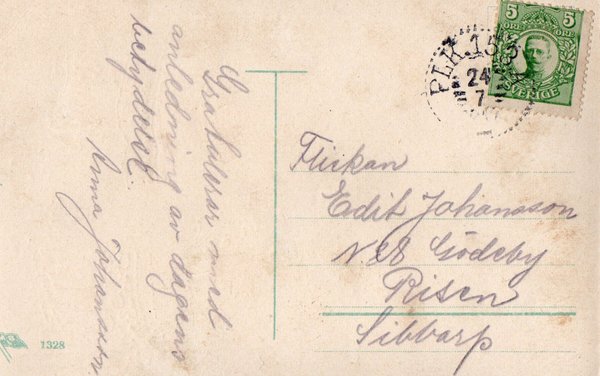 Gratulerar med
anledning av dagens
betydelse.
Anna Johansson.
PLK. 153
24
7
5 5
ÖRE ÖRE
SVERIGE
Flickan
Edit Johansson
Gödeby
Risen
Sibbarp
1328